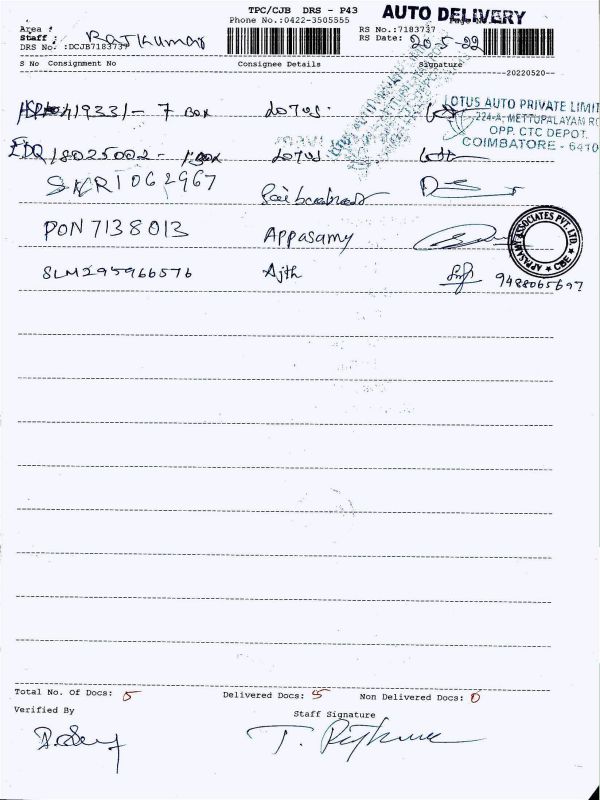 TPC/CJB DRS - P43 AUTO DELIVERY
Phone No.:0422-3505555
Area :
RS No.:7183737
Staff : Rajkumar
RS Date: 20-5-22
DRS No. :DCJB7183737
S No Consignment No Consignee Details Signature
20220520
419331 - 7 Box Lotus
LOTUS AUTO PRIVATE LIMIT
224-A, METTUPALAYAM RO
OPP. CTC DEPOT,
COIMBATORE - 6410
EDQ 18025002 - 1 Box Lotus
SKRT062967
PON 7138013 Appasamy
APPASAMY ASSOCIATES PVT. LTD. CBE
SLM295966576 Ajth 9488065697
Total No. Of Docs: 5 Delivered Docs: 5 Non Delivered Docs: 0
Verified By Staff Signature
T. Rajkumar